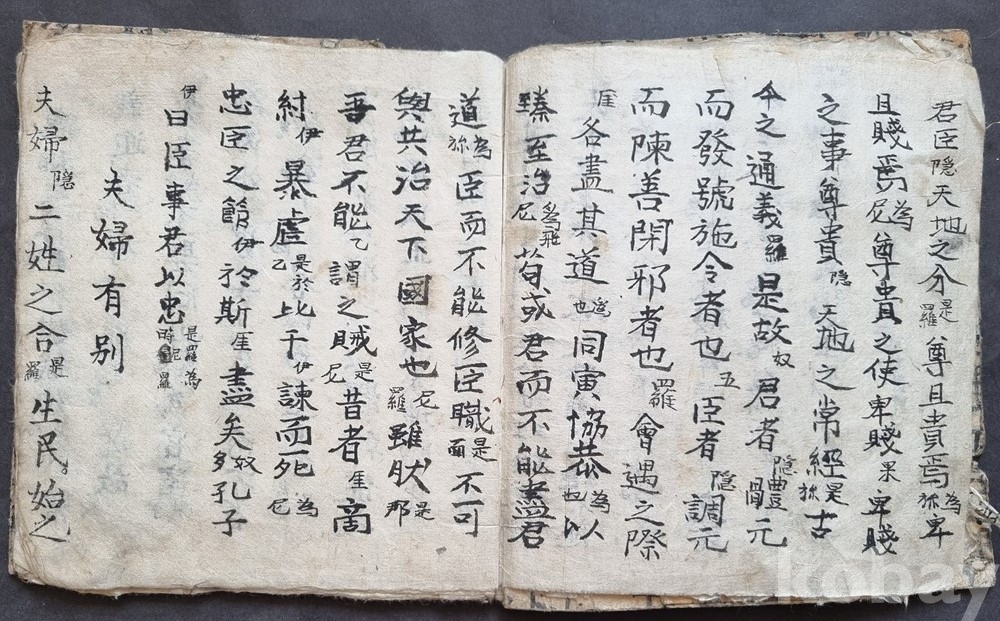 君臣隠天地之分是羅尊且貴焉為弥卑
且賤焉為尼尊貴之使卑賤果卑賤
之事尊貴隠天地之常經是弥古
今之通義羅是故奴君者隠體元
而發號施令者也五臣者隠調元
而陳善閉邪者也羅會遇之際
厓各盡其道為也同寅協恭為也以
臻至治為飛尼苟或君而不能盡君
道為弥臣而不能修臣職是面不可
與共治天下國家也尼羅雖然是那
吾君不能乙謂之賊是尼昔者厓商
紂伊暴虐乙是於比干伊諫而死為尼
忠臣之節伊於斯厓盡矣奴多孔子
伊曰臣事君以忠是羅為時尼羅
夫婦有別
夫婦隠二姓之合是羅生民始之
kobay